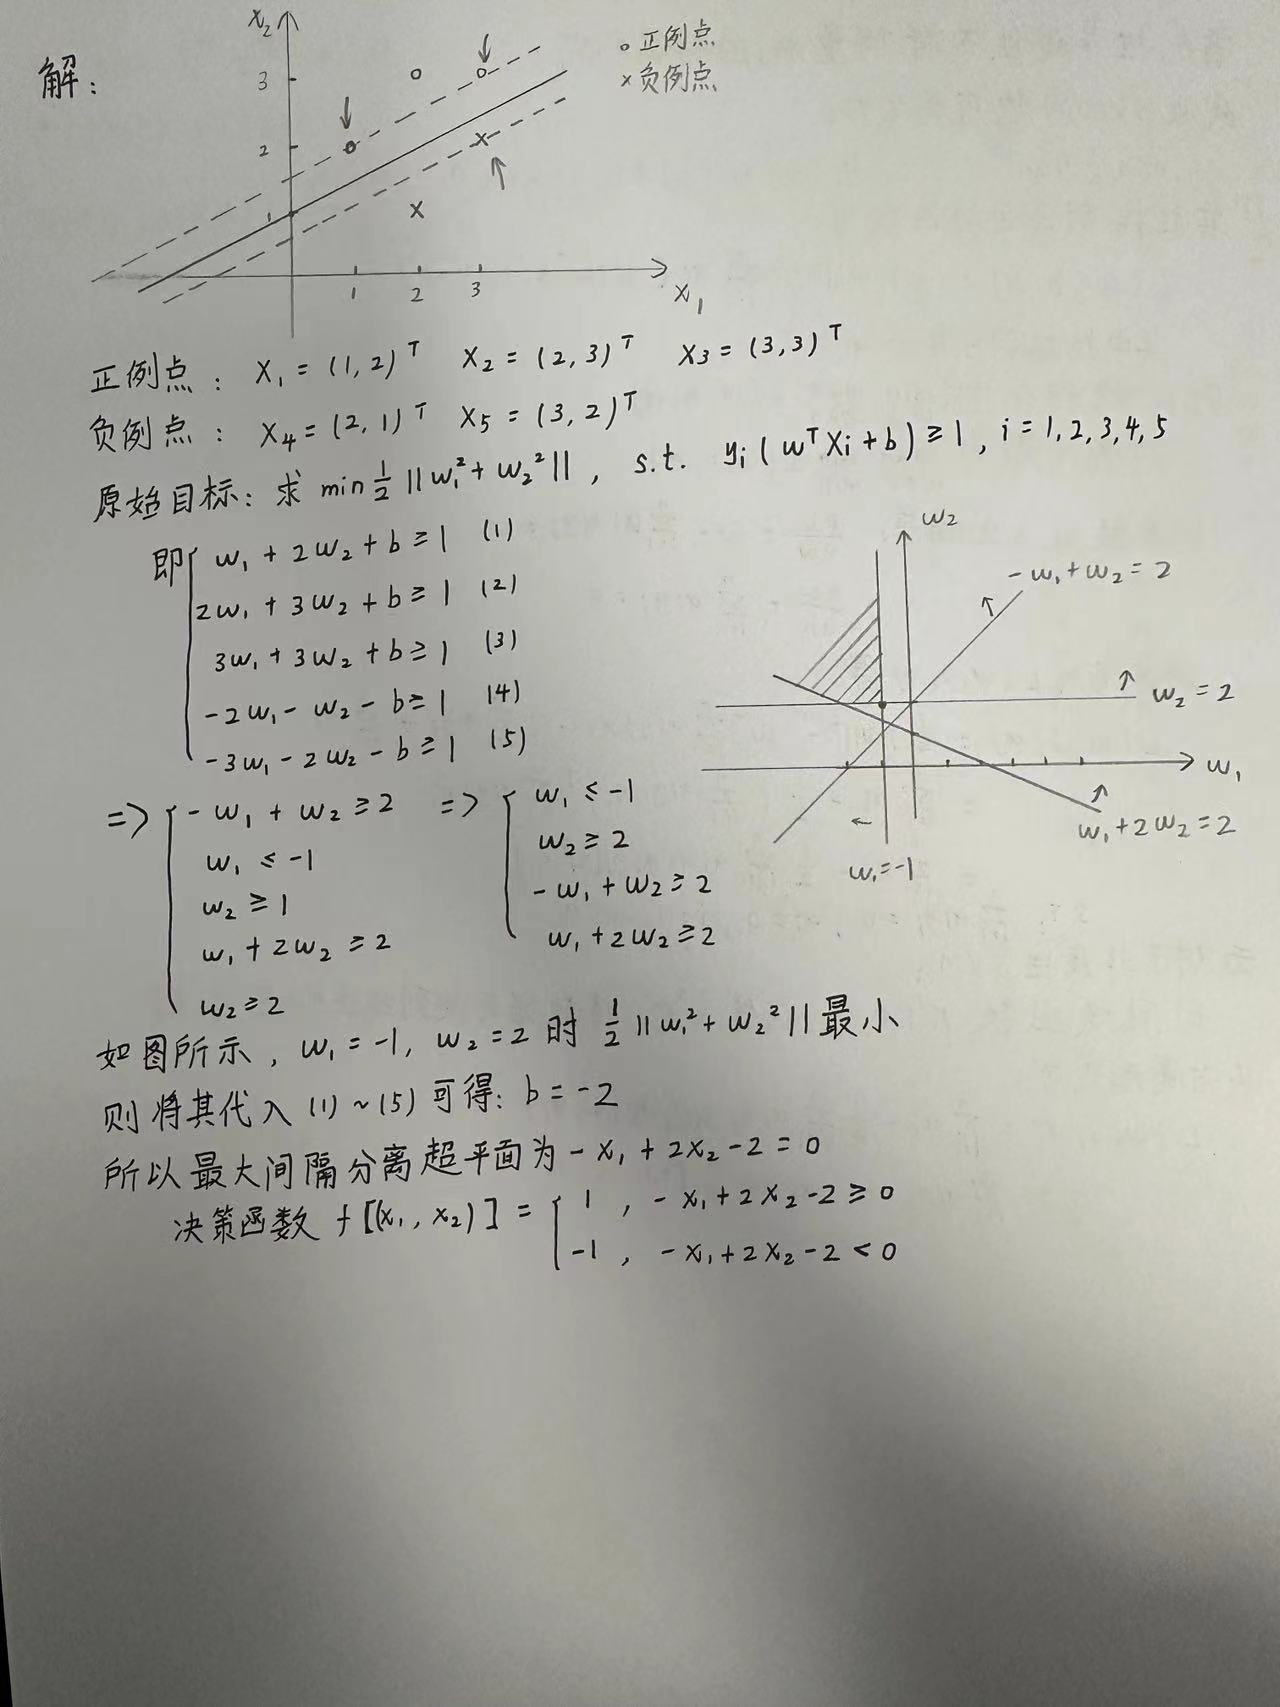 解：
x₂
3
2
1
1 2 3
x₁
∘ 正例点
× 负例点
正例点： X₁ = (1, 2)ᵀ X₂ = (2, 3)ᵀ X₃ = (3, 3)ᵀ
负例点： X₄ = (2, 1)ᵀ X₅ = (3, 2)ᵀ
原始目标：求 min ½ ||w₁² + w₂²||， s.t. yᵢ(wᵀXᵢ + b) ≥ 1, i = 1, 2, 3, 4, 5
即 { w₁ + 2w₂ + b ≥ 1 (1)
2w₁ + 3w₂ + b ≥ 1 (2)
3w₁ + 3w₂ + b ≥ 1 (3)
-2w₁ - w₂ - b ≥ 1 (4)
-3w₁ - 2w₂ - b ≥ 1 (5)
w₂
-w₁ + w₂ = 2
w₂ = 2
w₁
w₁ + 2w₂ = 2
w₁ = -1
=> { -w₁ + w₂ ≥ 2 => { w₁ ≤ -1
w₁ ≤ -1 w₂ ≥ 2
w₂ ≥ 1 -w₁ + w₂ ≥ 2
w₁ + 2w₂ ≥ 2 w₁ + 2w₂ ≥ 2
w₂ ≥ 2
如图所示，w₁ = -1, w₂ = 2 时 ½ ||w₁² + w₂²|| 最小
则将其代入 (1) ~ (5) 可得：b = -2
所以最大间隔分离超平面为 -x₁ + 2x₂ - 2 = 0
决策函数 f[(x₁, x₂)] = { 1 , -x₁ + 2x₂ - 2 ≥ 0
-1 , -x₁ + 2x₂ - 2 < 0